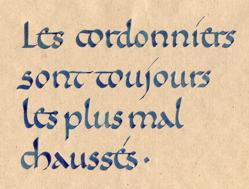 Les cordonniers
sont toujours
les plus mal
chaussés.